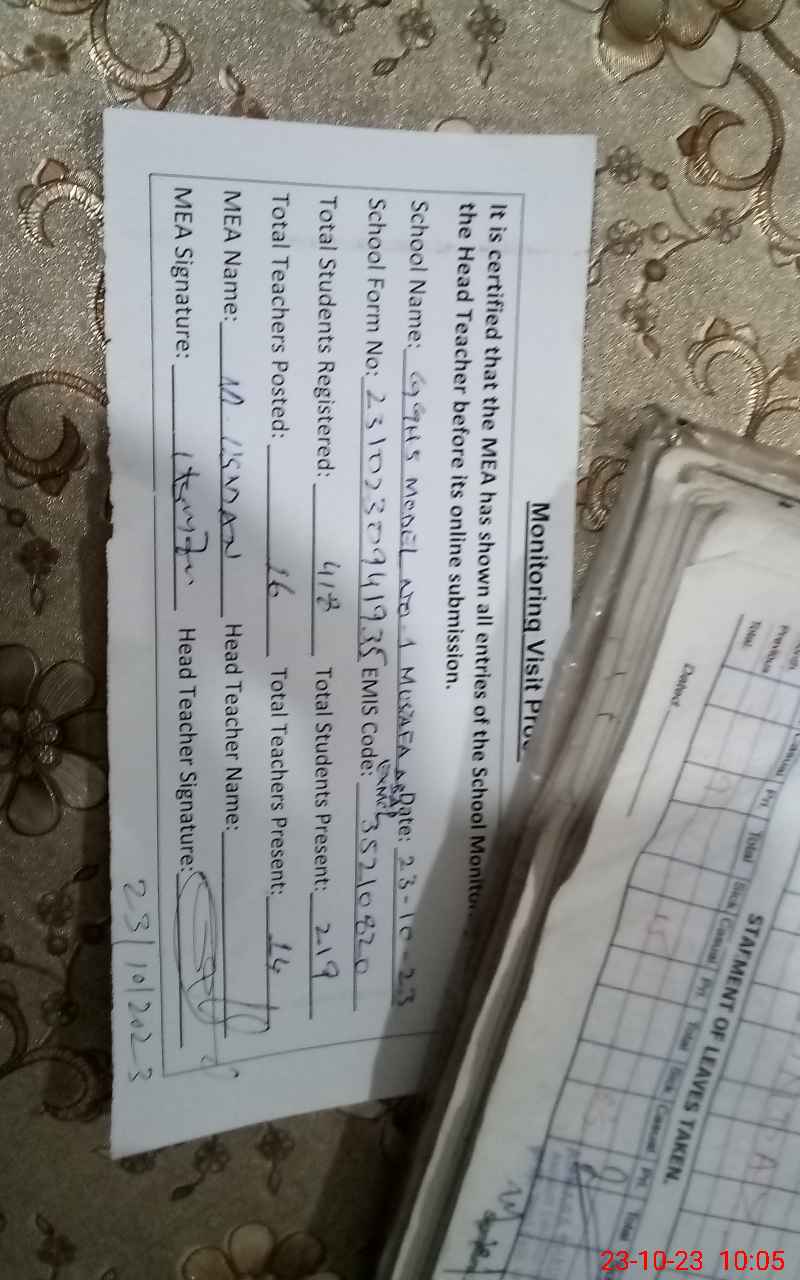 Monitoring Visit
It is certified that the MEA has shown all entries of the School
the Head Teacher before its online submission.
School Name: GGHS MODEL NO 1 MUSTAFA ABAD Date: 23-10-23
School Form No: 2310230941935 EMIS Code: 35210820
Total Students Registered: 418 Total Students Present: 219
Total Teachers Posted: 16 Total Teachers Present: 14
MEA Name: M. USMAN Head Teacher Name:
MEA Signature: Head Teacher Signature:
23/10/2023
STATMENT OF LEAVES TAKEN.
Total Sick Casual Pri. Total Sick Casual Pri. Total
23-10-23 10:05